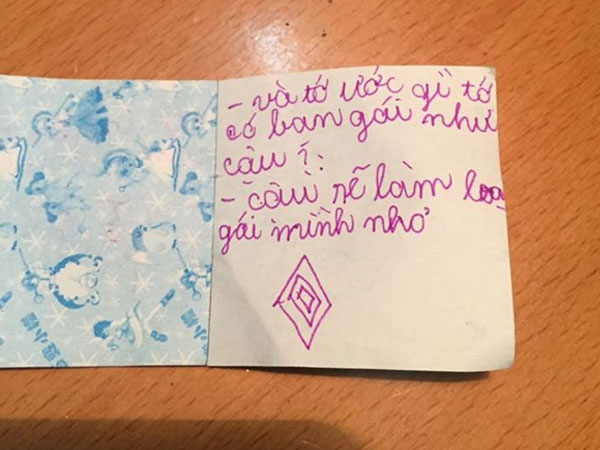 - và tớ ước gì tớ
có ban gái như
cậu í:
- cậu sẽ làm
gái mình nhơ